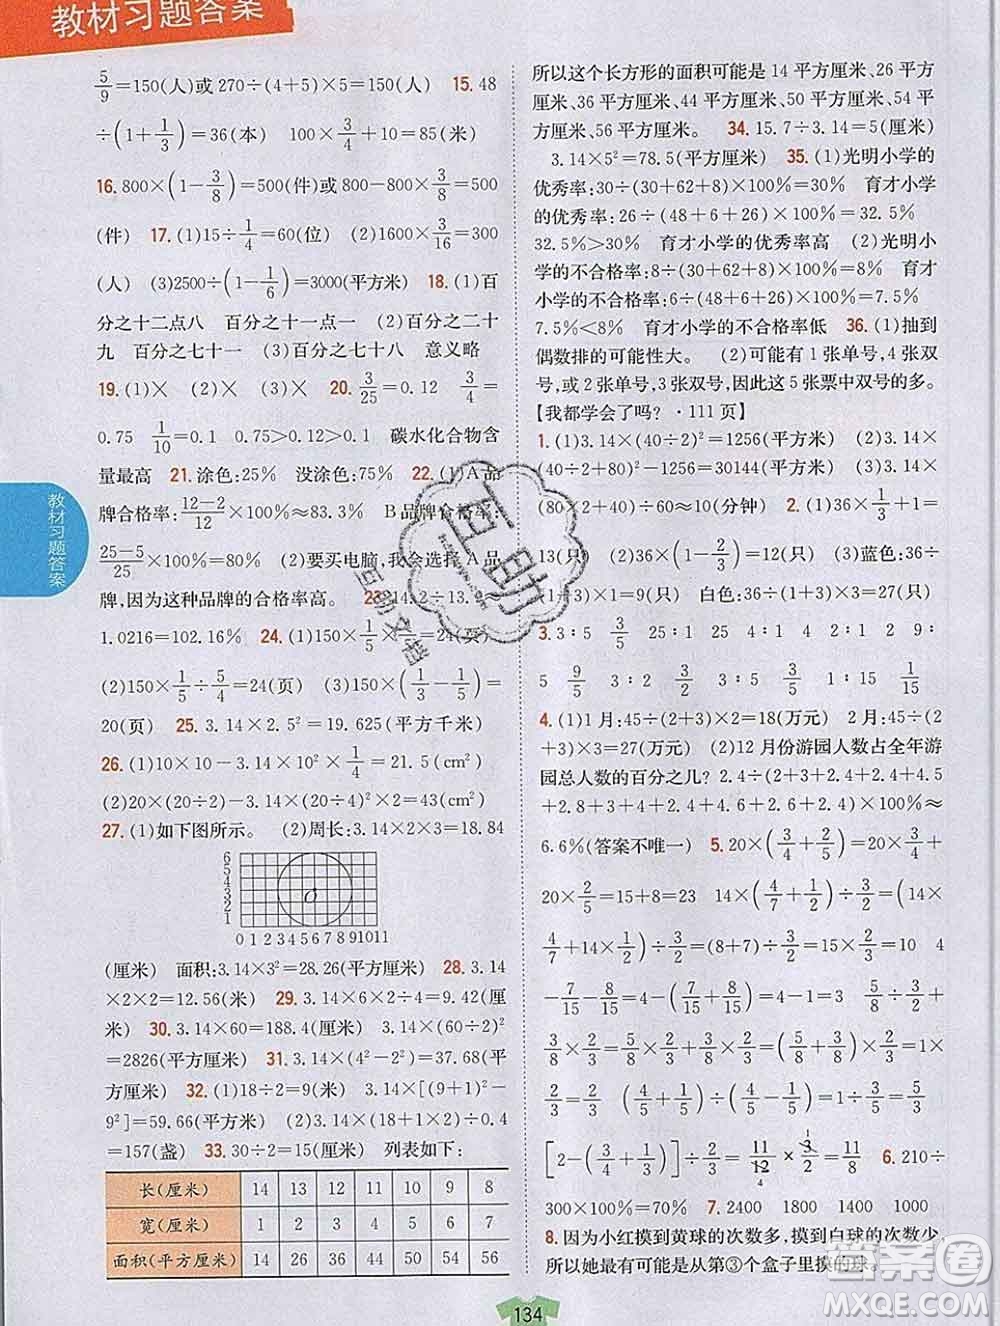 教材习题答案
5/9=150(人)或 270÷(4+5)×5=150(人) 15. 48
÷(1+1/3)=36(本) 100×3/4+10=85(米)
16. 800×(1-3/8)=500(件)或 800-800×3/8=500
(件) 17. (1)15÷1/4=60(位) (2)1600×3/16=300
(人) (3)2500÷(1-1/6)=3000(平方米) 18. (1)百
分之十二点八 百分之十一点一 (2)百分之二十
九 百分之七十一 (3)百分之百 意义略
19. (1)× (2)× (3)× 20. 3/25=0.12 3/4=
0.75 1/10=0.1 0.75>0.12>0.1 碳水化合物含
量最高 21. 涂色:25% 没涂色:75% 22. (1)A品
牌合格率:(12-2)/12×100%≈83.3% B品牌合格率:
(25-5)/25×100%=80% (2)要买电脑,我会选择 A 品
牌,因为这种品牌的合格率高。
1.0216=102.16% 24. (1)150×1/5×4/5=24(页)
(2)150×1/5÷5/4=24(页) (3)150×(1/3-1/5)=
20(页) 25. 3.14×2.5²=19.625(平方千米)
26. (1)10×10-3.14×10²×1/4=21.5(cm²)
(2)20×(20÷2)-3.14×(20÷4)²×2=43(cm²)
27. (1)如下图所示。 (2)周长:3.14×3×2=18.84
6
5
4
3
2
1
0 1 2 3 4 5 6 7 8 9 10 11
O
(厘米) 面积:3.14×3²=28.26(平方厘米) 28. 3.14
×2×2=12.56(米) 29. 3.14×6×2÷4=9.42(厘
米) 30. 3.14×60=188.4(厘米) 3.14×(60÷2)²
=2826(平方厘米) 31. 3.14×(4²-2²)=37.68(平
方厘米) 32. (1)18÷2=9(米) 3.14×[(9+1)²-
9²]=59.66(平方米) (2)3.14×(18+1×2)÷0.4
=157(盏) 33. 30÷2=15(厘米) 列表如下:
长(厘米) 14 13 12 11 10 9 8
宽(厘米) 1 2 3 4 5 6 7
面积(平方厘米) 14 26 36 44 50 54 56
所以这个长方形的面积可能是 14 平方厘米、26 平方
厘米、36 平方厘米、44 平方厘米、50 平方厘米、54 平方
厘米、56 平方厘米。 34. 15.7÷3.14=5(厘米)
3.14×5²=78.5(平方厘米) 35. (1)光明小学的
优秀率:30÷(30+62+8)×100%=30% 育才小学
的优秀率:26÷(48+6+26)×100%=32.5%
32.5%>30% 育才小学的优秀率高 (2)光明小
学的不合格率:8÷(30+62+8)×100%=8% 育才
小学的不合格率:6÷(48+6+26)×100%=7.5%
7.5%<8% 育才小学的不合格率低 36. (1)抽到
偶数排的可能性大。 (2)可能有 1 张单号,4 张双
号,或 2 张单号,3 张双号,因此这 5 张票中双号的多。
【我都学会了吗?·111 页】
1. (1)3.14×(40÷2)²=1256(平方米) (2)3.14×
(40÷2+80)²-1256=30144(平方米) (3)3.14×
(80+40)×10÷60≈(分钟) 2. (1)36×1/3+1=
13(只) (2)36×(1-2/3)=12(只) (3)蓝色:36÷
(1+3)×1=9(只) 白色:36÷(1+3)×3=27(只)
3. 3∶5 3/5 25∶1 25 4∶1 4 1∶2 1/2 9∶
5 9/5 3∶2 3/2 3∶2 3/2 1∶111 1/111
4. (1)1 月:45÷(2+3)×2=18(万元) 2 月:45÷(2
+3)×3=27(万元) (2)12 月份游园人数占全年游
园总人数的百分之几? 2.4÷(2+2.4+2.4+4.5
+2.8+3+4+4+3.2+3+2.8+2.4)×100%≈
6.6%(答案不唯一) 5. 20×(3/4+2/5)=20×3/4+
20×2/5=15+8=23 14×(4/7+2/5)÷2/5=(14×
4/7+14×2/5)×5/2=14×4/7×5/2+14=20+14=34
4/5×11÷4/5+2/5×10=11+4=15 12×(2/3+
3/4)-7=12×2/3+12×3/4-7=8+9-7=10 4
-7/15-8/15=4-(7/15+8/15)=4-1=3 5/8÷3/2+
3/8×2/3=5/8×2/3+3/8×2/3=(5/8+3/8)×2/3=1×
2/3=2/3 1/5÷[(4/5+1/5)×2/3]=1/5÷2/3=3/10
[2-(3/4+1/3)]÷3/2=11/12×2/3 6. 210÷
300×100%=70% 7. 2400 1800 1400 1000
8. 因为小红摸到黄球的次数多,摸到白球的次数少,
所以她最有可能是从第③个盒子里摸的球。
教材习题答案
134
答案圈
MXQE.COM